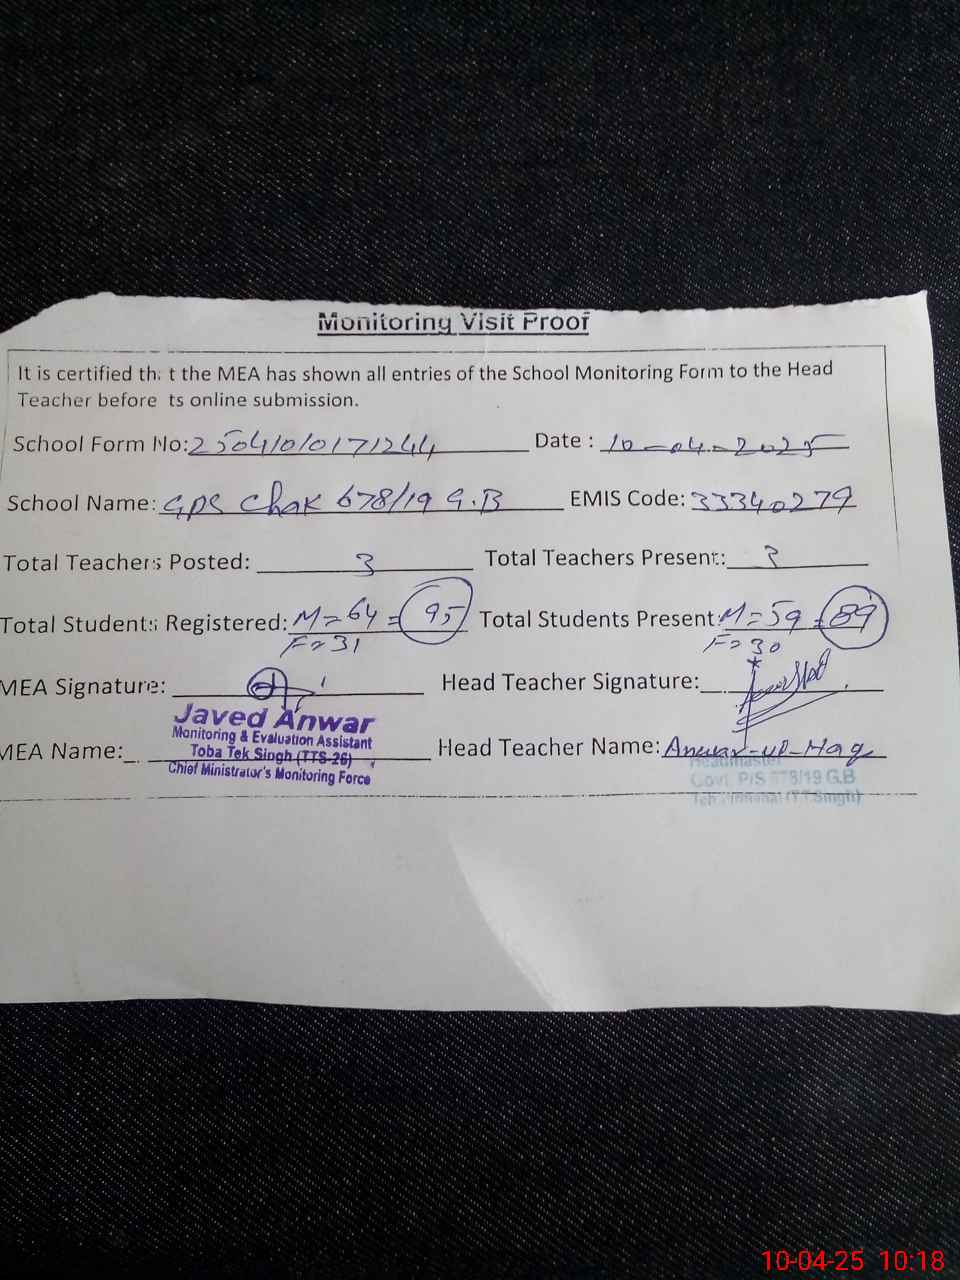 Monitoring Visit Proof
It is certified that the MEA has shown all entries of the School Monitoring Form to the Head
Teacher before its online submission.
School Form No: 25041010171244 Date : 10-04-2025
School Name: GPS Chak 678/19 G.B EMIS Code: 33340279
Total Teachers Posted: 3 Total Teachers Present: 3
Total Students Registered: M=64 = 95 Total Students Present: M=59 = 89
F=31 F=30
MEA Signature: Head Teacher Signature:
Javed Anwar
Monitoring & Evaluation Assistant
Toba Tek Singh (TTS-26)
Chief Ministrator's Monitoring Force
MEA Name: Head Teacher Name: Anwar-ul-Haq
Headmaster
Govt. P/S 678/19 G.B
(T.T.Singh)
10-04-25 10:18